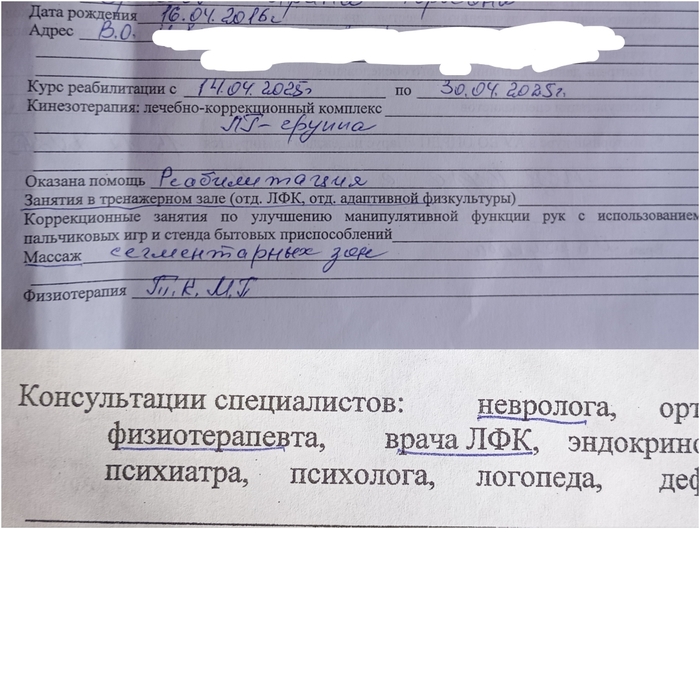 Дата рождения 16.04.2016г
Адрес В.О.
Курс реабилитации с 14.04.2025г по 30.04.2025г.
Кинезотерапия: лечебно-коррекционный комплекс
ЛГ-группа
Оказана помощь Реабилитация
Занятия в тренажерном зале (отд. ЛФК, отд. адаптивной физкультуры)
Коррекционные занятия по улучшению манипулятивной функции рук с использованием
пальчиковых игр и стенда бытовых приспособлений
Массаж сегментарных зон
Физиотерапия Т.К. М.П
Консультации специалистов: невролога, орт
физиотерапевта, врача ЛФК, эндокрино
психиатра, психолога, логопеда, деф